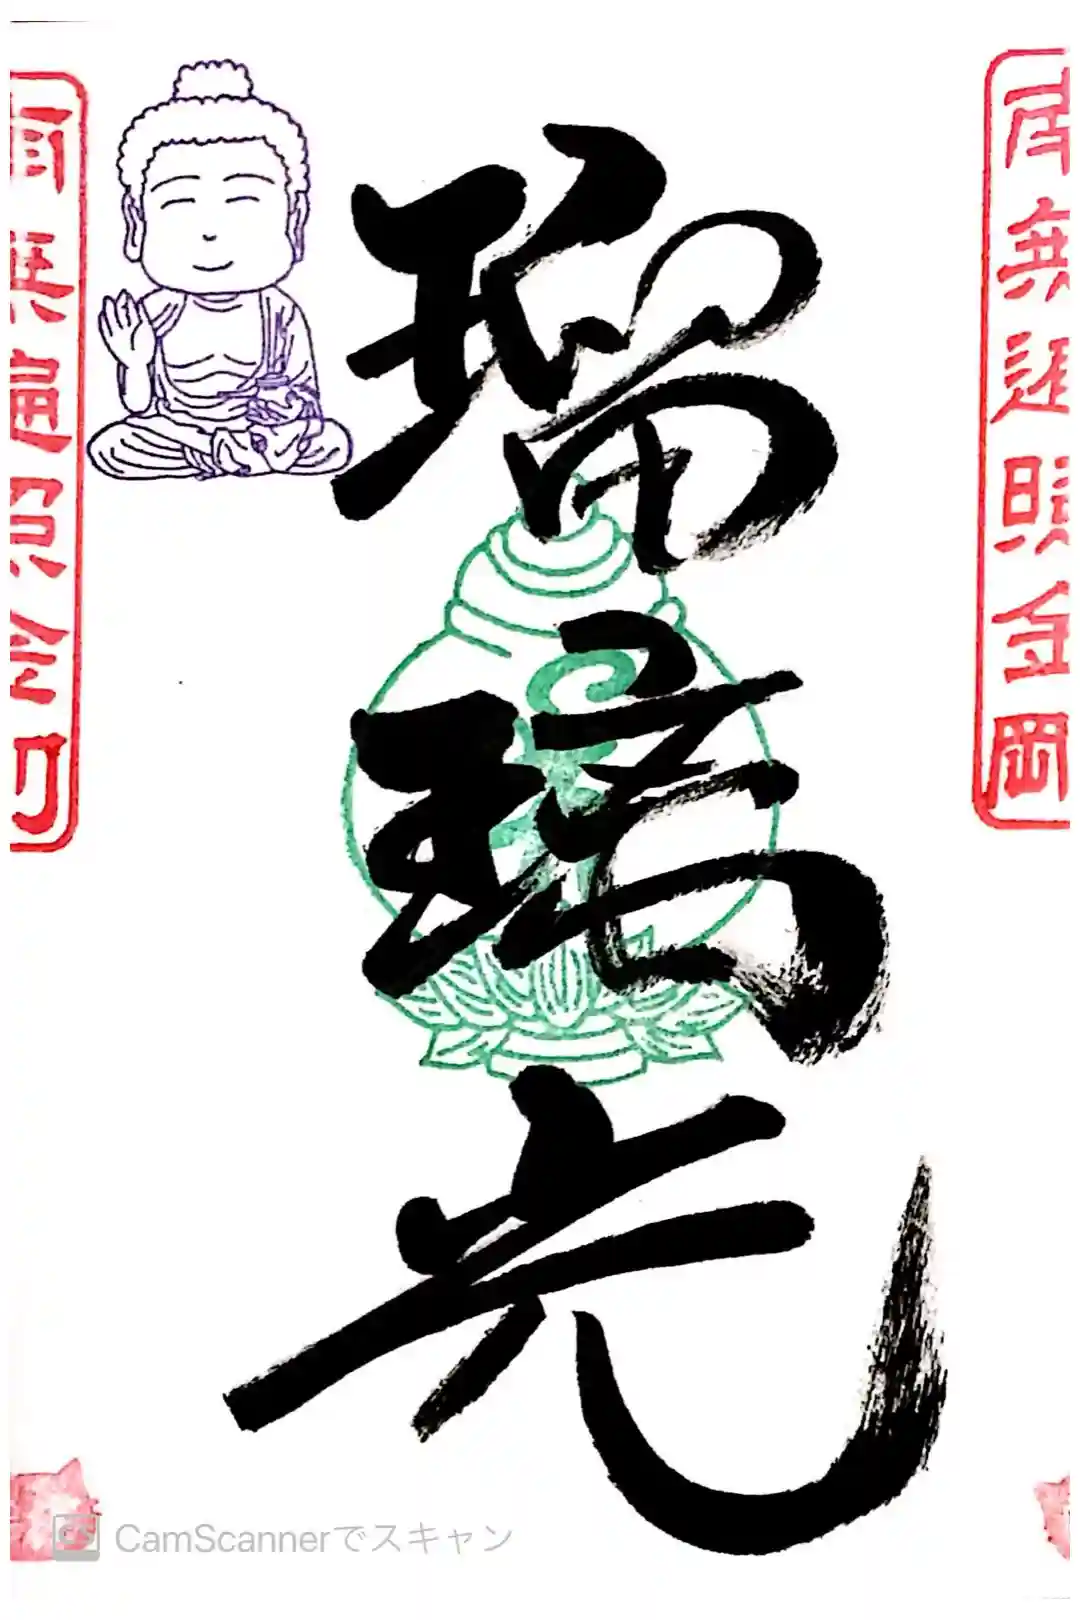 南無遍照金剛
瑠璃光
南無遍照金剛
CS CamScannerでスキャン